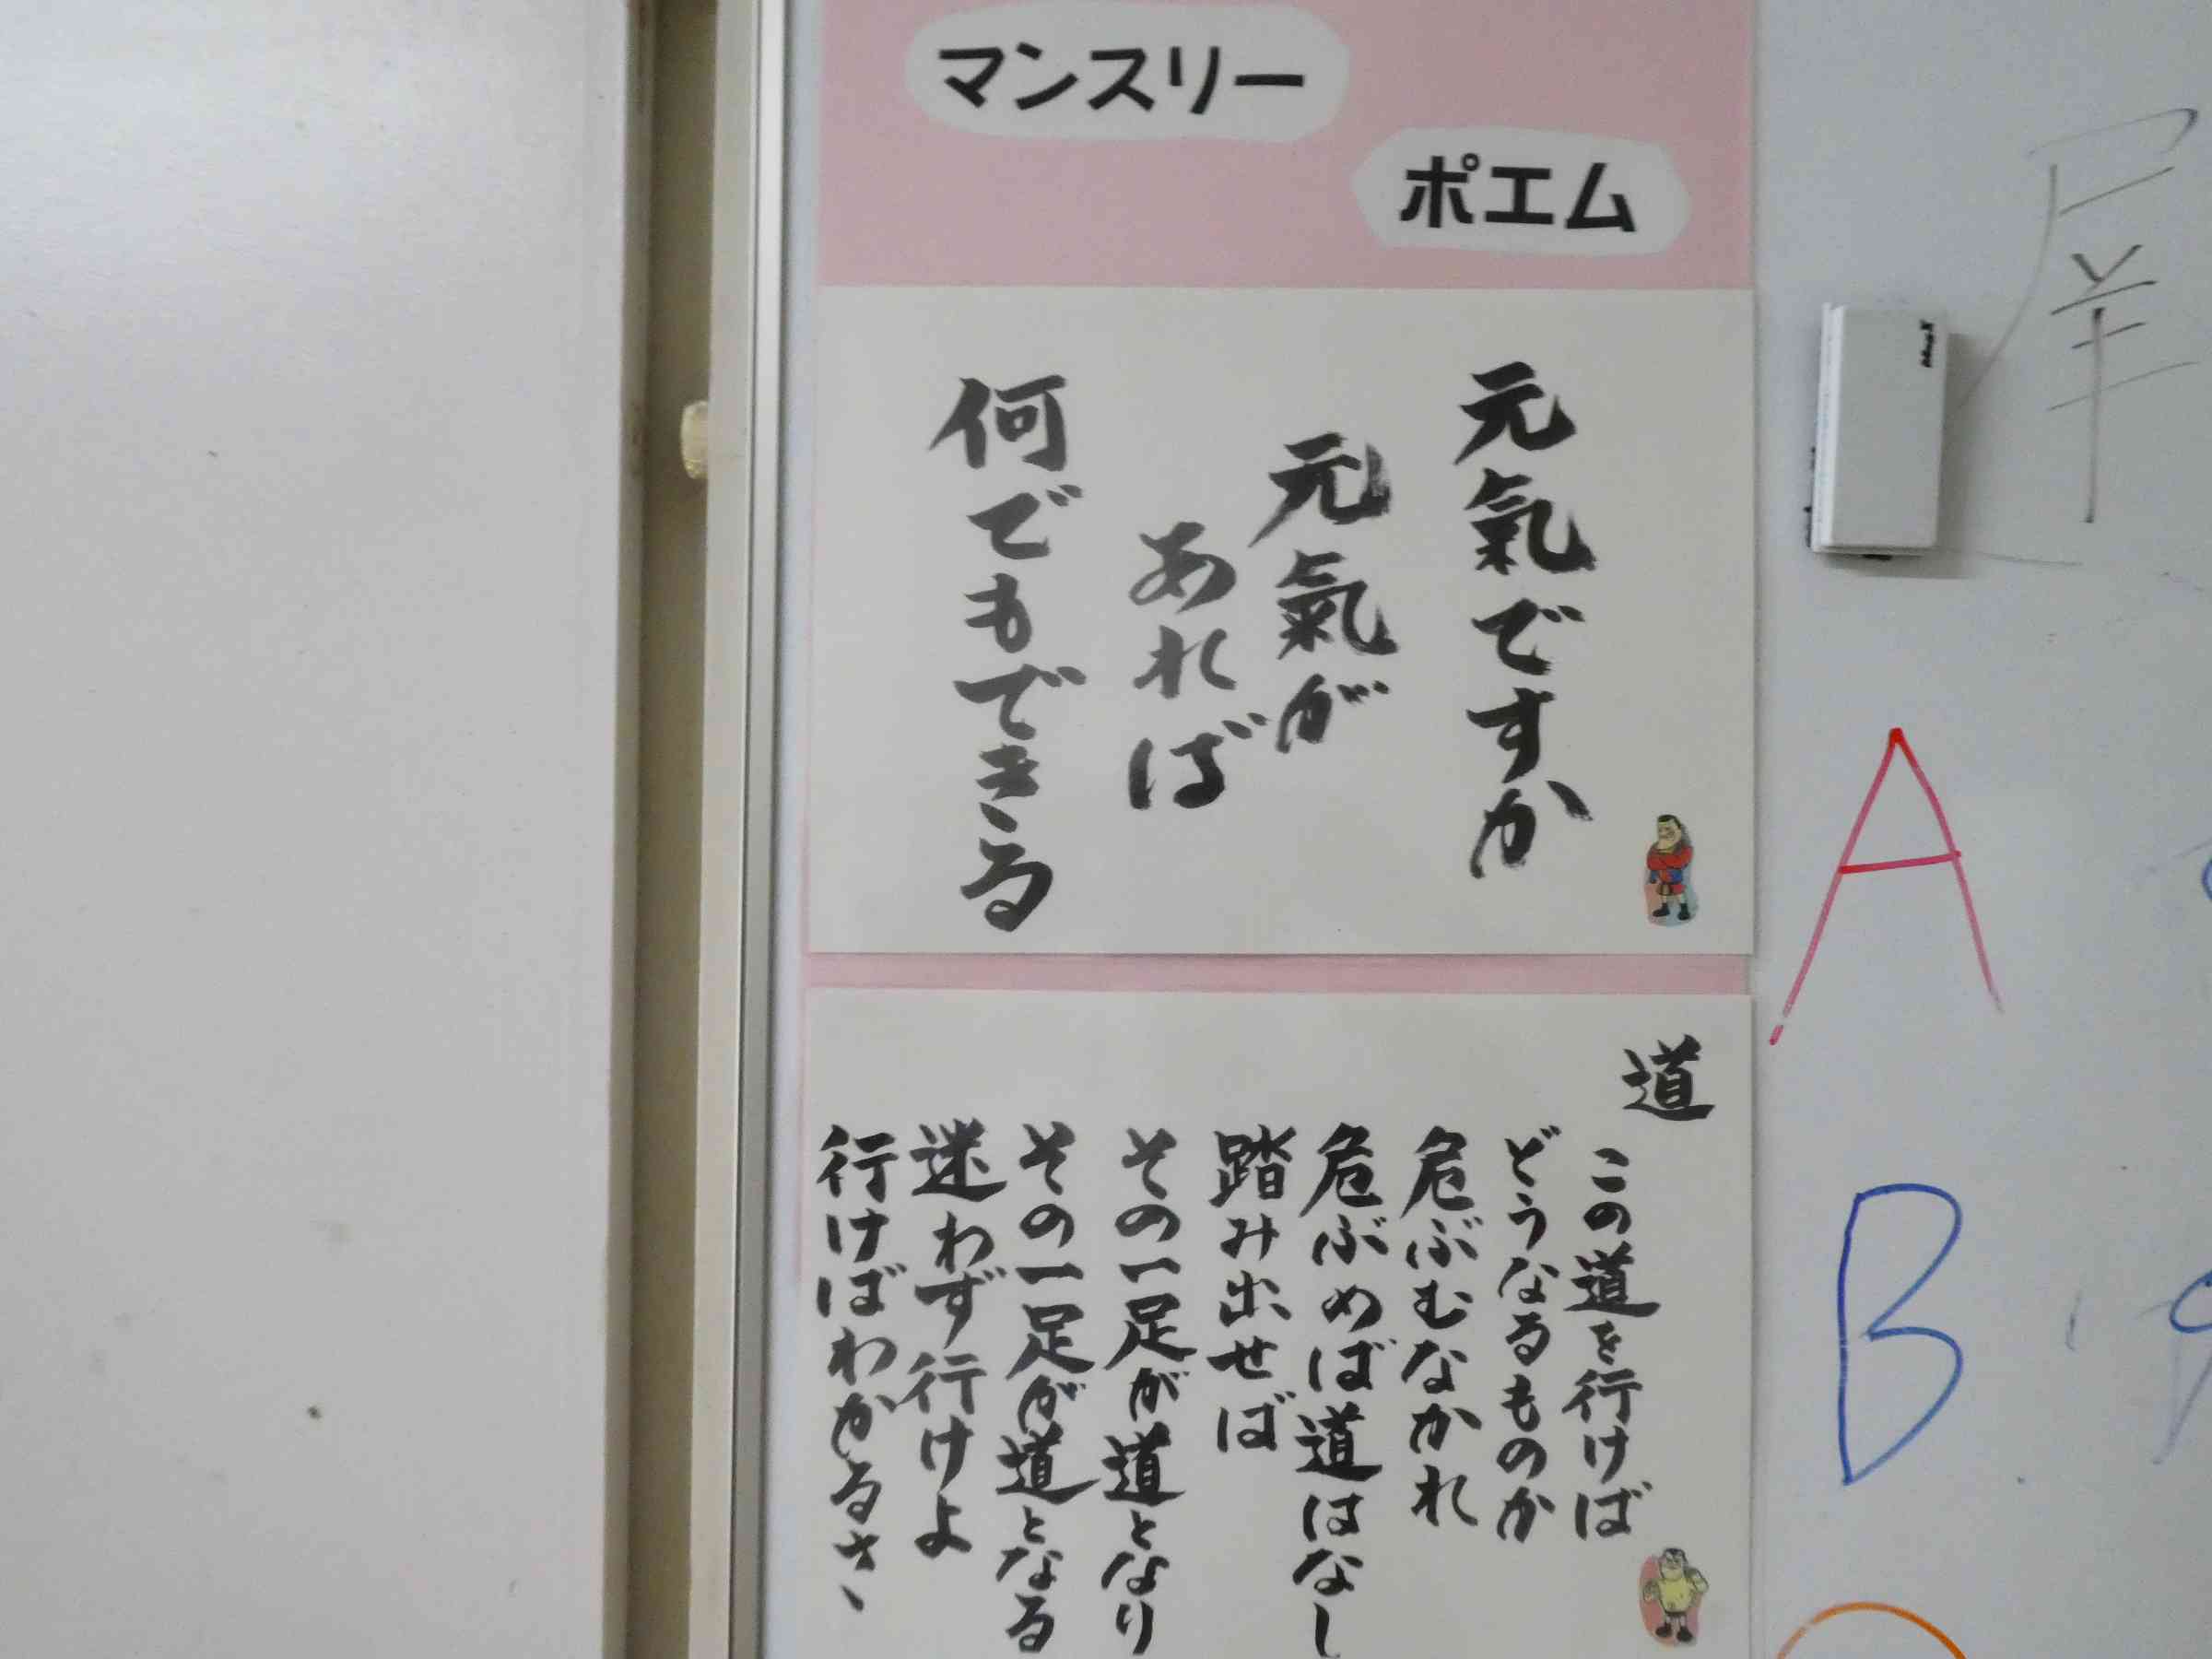 マンスリー
ポエム
元氣ですか
元氣が
あれば
何でもできる
道
この道を行けば
どうなるものか
危ぶむなかれ
危ぶめば道はなし
踏み出せば
その一足が道となり
その一足が道となる
迷わず行けよ
行けばわかるさ
A
B